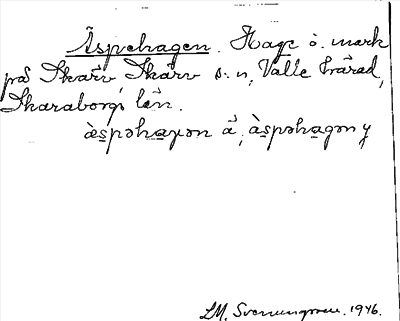 Äspehagen. Hage o. mark
på Skärv, Skärv s:n, Valle härad,
Skaraborgs län.
æ̀spəhaɣən ä, às̱pəhagən y
LM. Svenungsson. 1946.